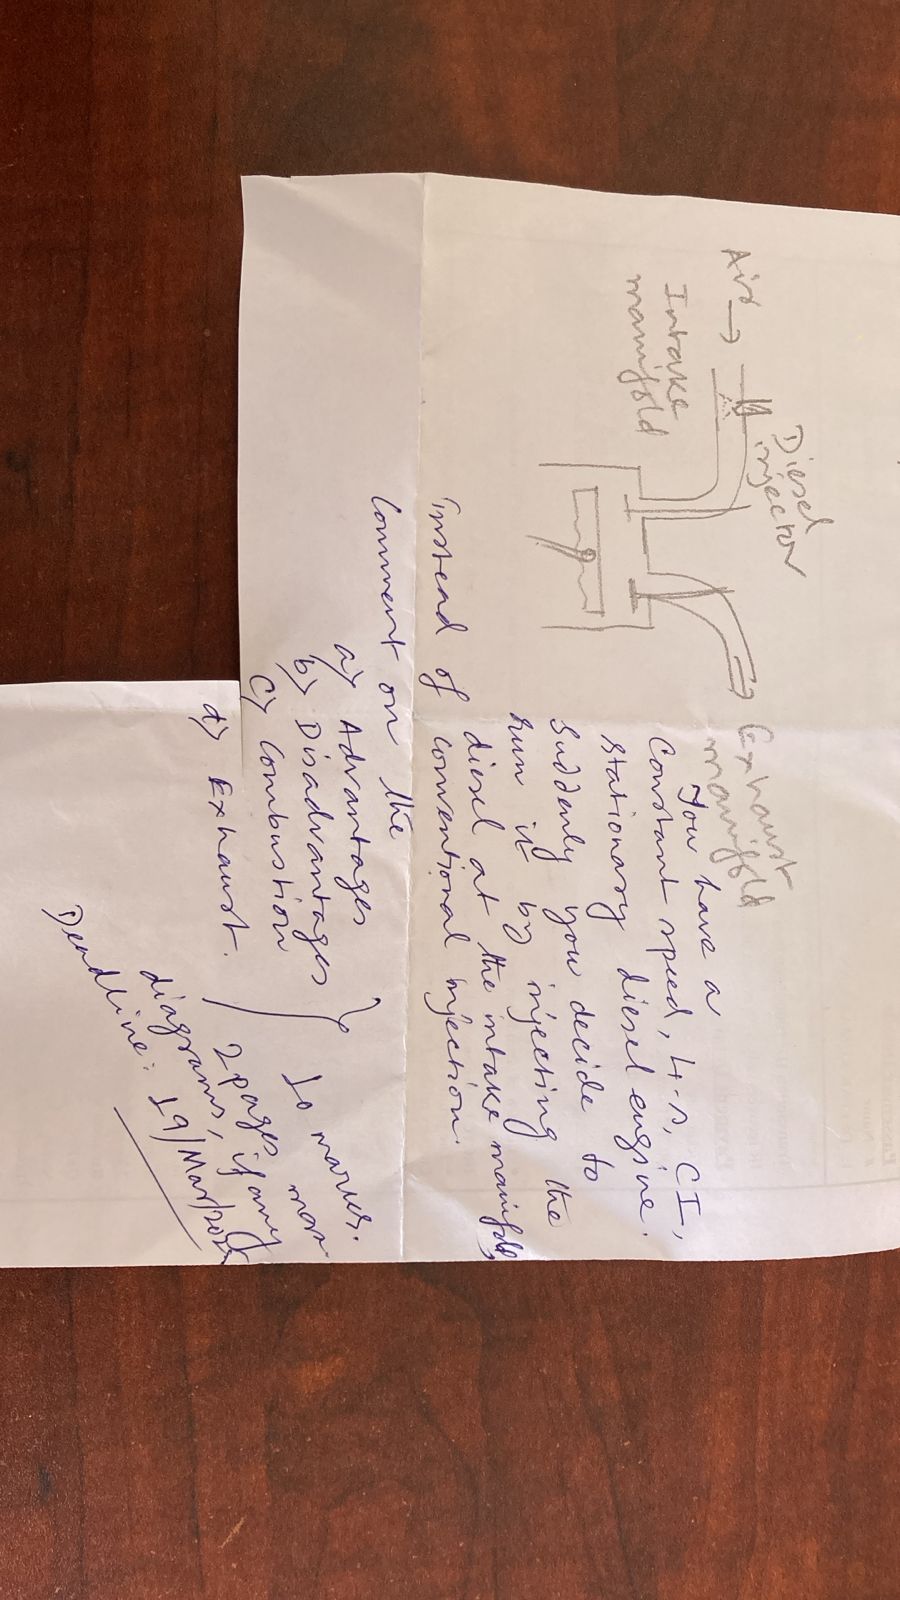 Air →
Intake
manifold
Diesel
injector
Exhaust
manifold
You have a
constant speed, 4-s, CI,
stationary diesel engine.
Suddenly you decide to
run it by injecting the
diesel at the intake manifold,
instead of conventional injection.
Comment on the
a) Advantages
b) Disadvantages
c) Combustion
d) Exhaust.
10 marks.
2 pages max
diagrams, if any
Deadline: 19/Mar/